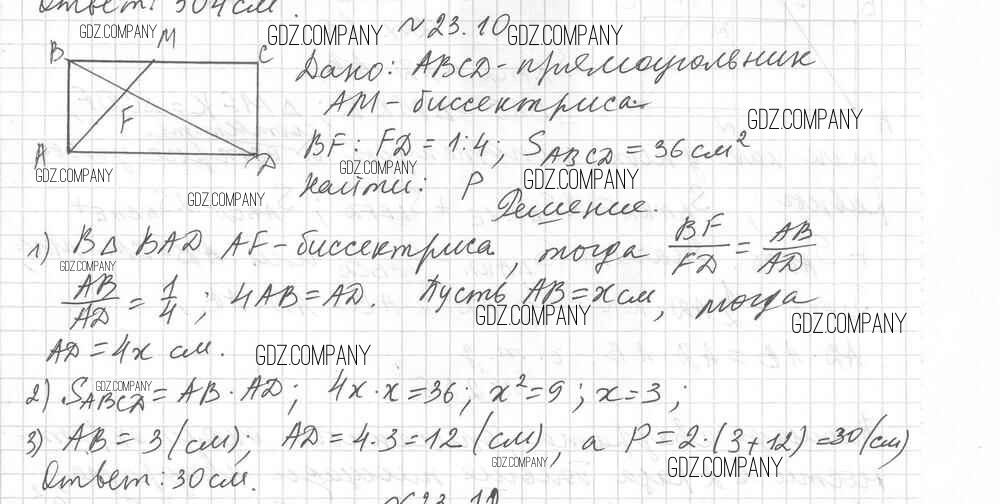 Ответ: 304 см.
GDZ.COMPANY GDZ.COMPANY № 23.10 GDZ.COMPANY
B M C
Дано: ABCD - прямоугольник
AM - биссектриса
F
GDZ.COMPANY
BF : FD = 1:4; S ABCD = 36 см²
A D
GDZ.COMPANY GDZ.COMPANY GDZ.COMPANY
Найти: P
GDZ.COMPANY
Решение.
1) В Δ BAD AF - биссектриса, тогда BF/FD = AB/AD
GDZ.COMPANY
AB/AD = 1/4; 4AB = AD. Пусть AB = x см, тогда
GDZ.COMPANY GDZ.COMPANY
AD = 4x см.
GDZ.COMPANY
GDZ.COMPANY
2) S ABCD = AB · AD; 4x · x = 36; x² = 9; x = 3;
3) AB = 3 (см); AD = 4·3 = 12 (см), а P = 2·(3+12) = 30 (см)
GDZ.COMPANY GDZ.COMPANY
Ответ: 30 см.